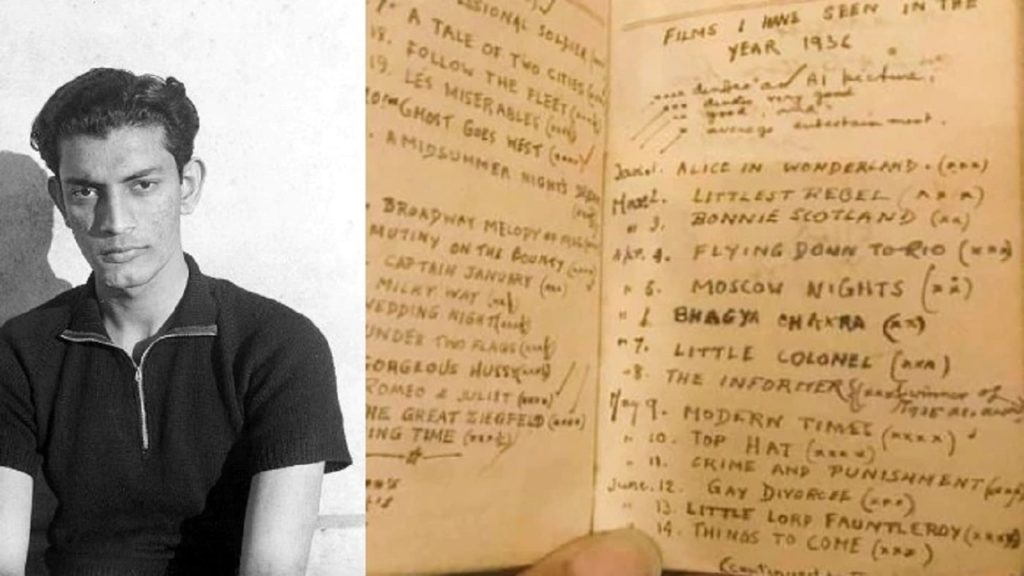 SSIONAL SOLDIER
A TALE OF TWO CITIES
18. FOLLOW THE FLEET
19. LES MISERABLES (
GHOST GOES WEST (xxxx)
A MIDSUMMER NIGHTS
BROADWAY MELODY OF
MUTINY ON THE BOUNTY
CAPTAIN JANUARY (xx)
MILKY WAY
WEDDING NIGHT
UNDER TWO FLAGS
GORGEOUS HUSSY
ROMEO & JULIET (xxxx)
HE GREAT ZIEGFELD (xxxx)
ING TIME
FILMS I HAVE SEEN IN THE
YEAR 1936
A1 picture.
very good
good
x average entertainment.
1. ALICE IN WONDERLAND. (xxx)
2. LITTLEST REBEL (xxx)
" 3. BONNIE SCOTLAND (xx)
Apr. 4. FLYING DOWN TO RIO (xxx)
" 5. MOSCOW NIGHTS (xx)
" 6. BHAGYA CHAKRA (xx)
" 7. LITTLE COLONEL (xxx)
" 8. THE INFORMER winner of
1935
May 9. MODERN TIMES (xxxx)
" 10. TOP HAT (xxxx)
" 11. CRIME AND PUNISHMENT (xxx)
June. 12. GAY DIVORCEE (xxx)
" 13. LITTLE LORD FAUNTLEROY (xxxx)
14. THINGS TO COME (xxx)
(continued